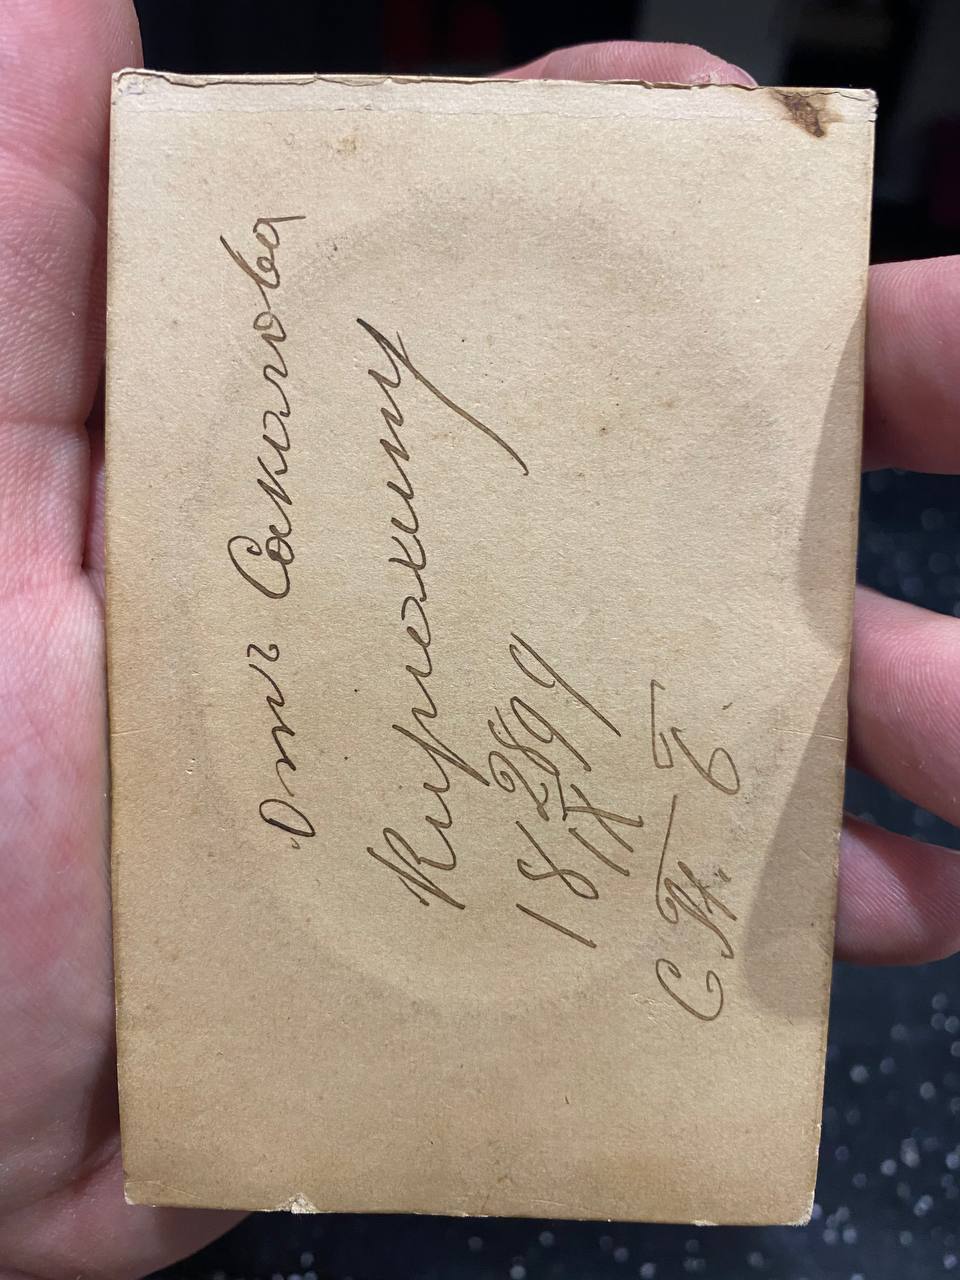 Отъ Сакалова
Кирсакину
18 28/IX 99
С.П.Б.